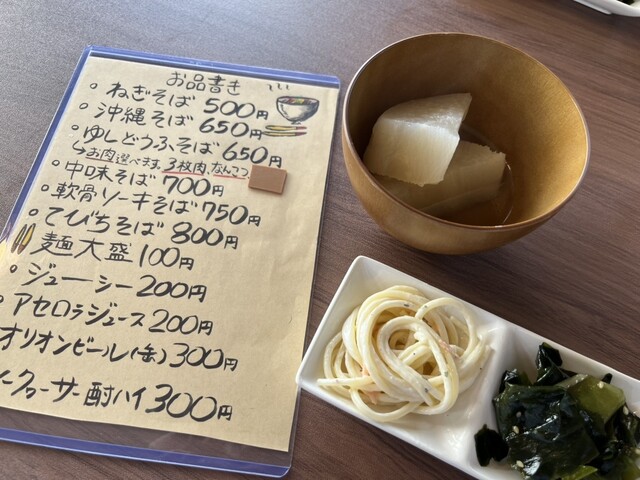 お品書き
ねぎそば 500円
沖縄そば 650円
ゆしどうふそば 650円
お肉選べます。3枚肉、なんこつ
中味そば 700円
軟骨ソーキそば 750円
てびちそば 800円
麺大盛 100円
ジューシー 200円
アセロラジュース 200円
オリオンビール(缶) 300円
ークヮーサー酎ハイ 300円